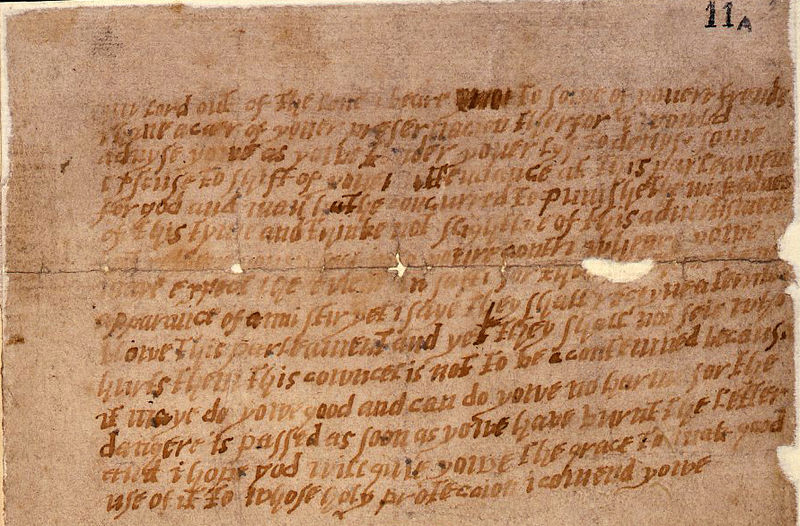 11A
my lord out of the love i beare to some of youere frends
i have a caer of youer preseruacion therfor i would
aduyse yowe as yowe tender youer lyf to deuys some
exscuse to shift of youer attendance at this parleament
for god and man hathe concurred to punishe the wickednes
of this tyme and thinke not slightlye of this aduertisment
youre contri wheare yowe
maye expect the in safti for
apparance of anni stir yet i saye they shall receyve a terribel
blowe this parleament and yet they shall not seie who
hurts them this cowncel is not to be a contemned becaus
it maye do yowe good and can do yowe no harme for the
dangere is passed as soon as yowe have burnt the letter
and i hope god will giue yowe the grace to mak good
use of it to whose holy proteccion i comend yowe